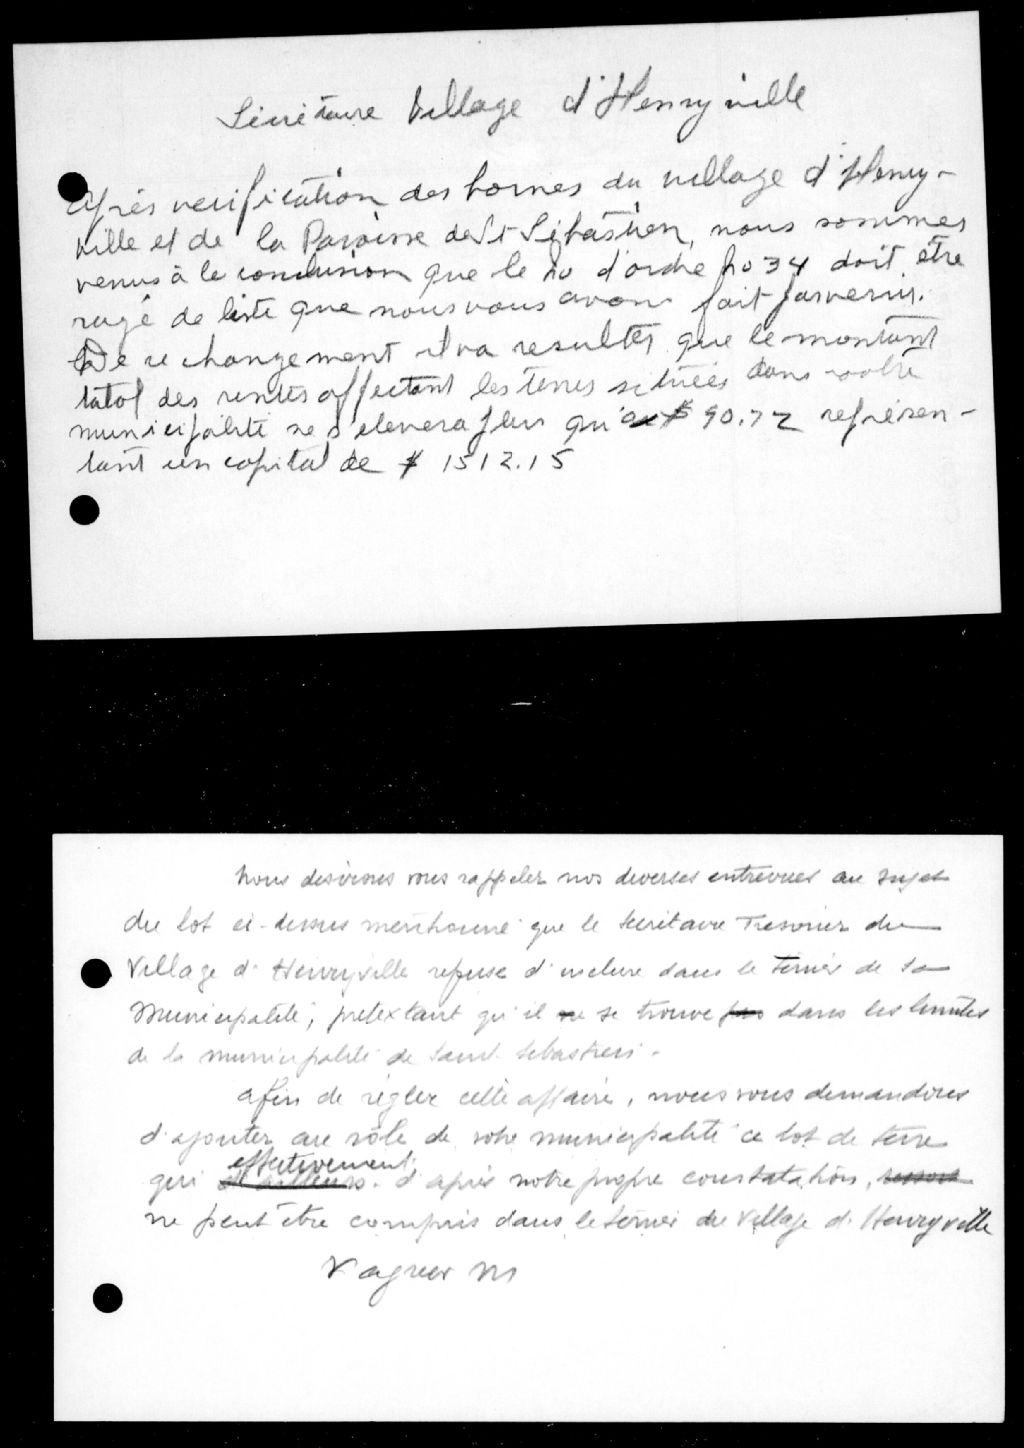 Secrétaire Village d'Henryville
Après verification des bornes du village d'Henry-
ville et de la Paroisse de St Sébastien, nous sommes
venus à la conclusion que le no d'ordre no 34 doit être
rayé de liste que nous vous avons fait parvenir.
De ce changement il va resulter que le montant
total des rentes affectant les terres situées dans votre
municipalité ne s'elevera plus qu'à $ 90.72 représen-
tant un capital de $ 1512.15
Nous desirons vous rappeler nos diverses entrevues au sujet
du lot ci-dessus mentionné que le Secrétaire Tresorier du
Village d'Henryville refuse d'inclure dans le terrier de sa
Municipalité, pretextant qu'il ne se trouve pas dans les limites
de la municipalité de Saint Sebastien.
Afin de régler cette affaire, nous vous demandons
d'ajouter au rôle de votre municipalité ce lot de terre
effectivement
qui d'ailleurs d'après notre propre constatation,
ne peut être compris dans le terrier du Village d'Henryville
Vagreer Ms